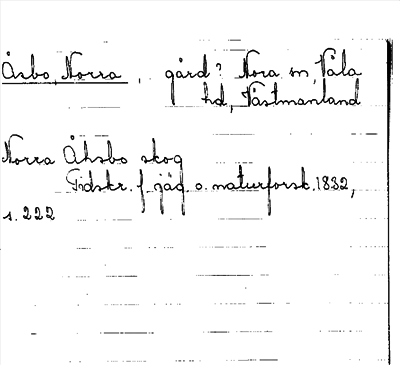 Årbo, Norra, gård? Nora sn, Våla
hd, Västmanland
Norra Åhsbo skog
Tidskr. f. jäg. o. naturforsk. 1832,
s. 222